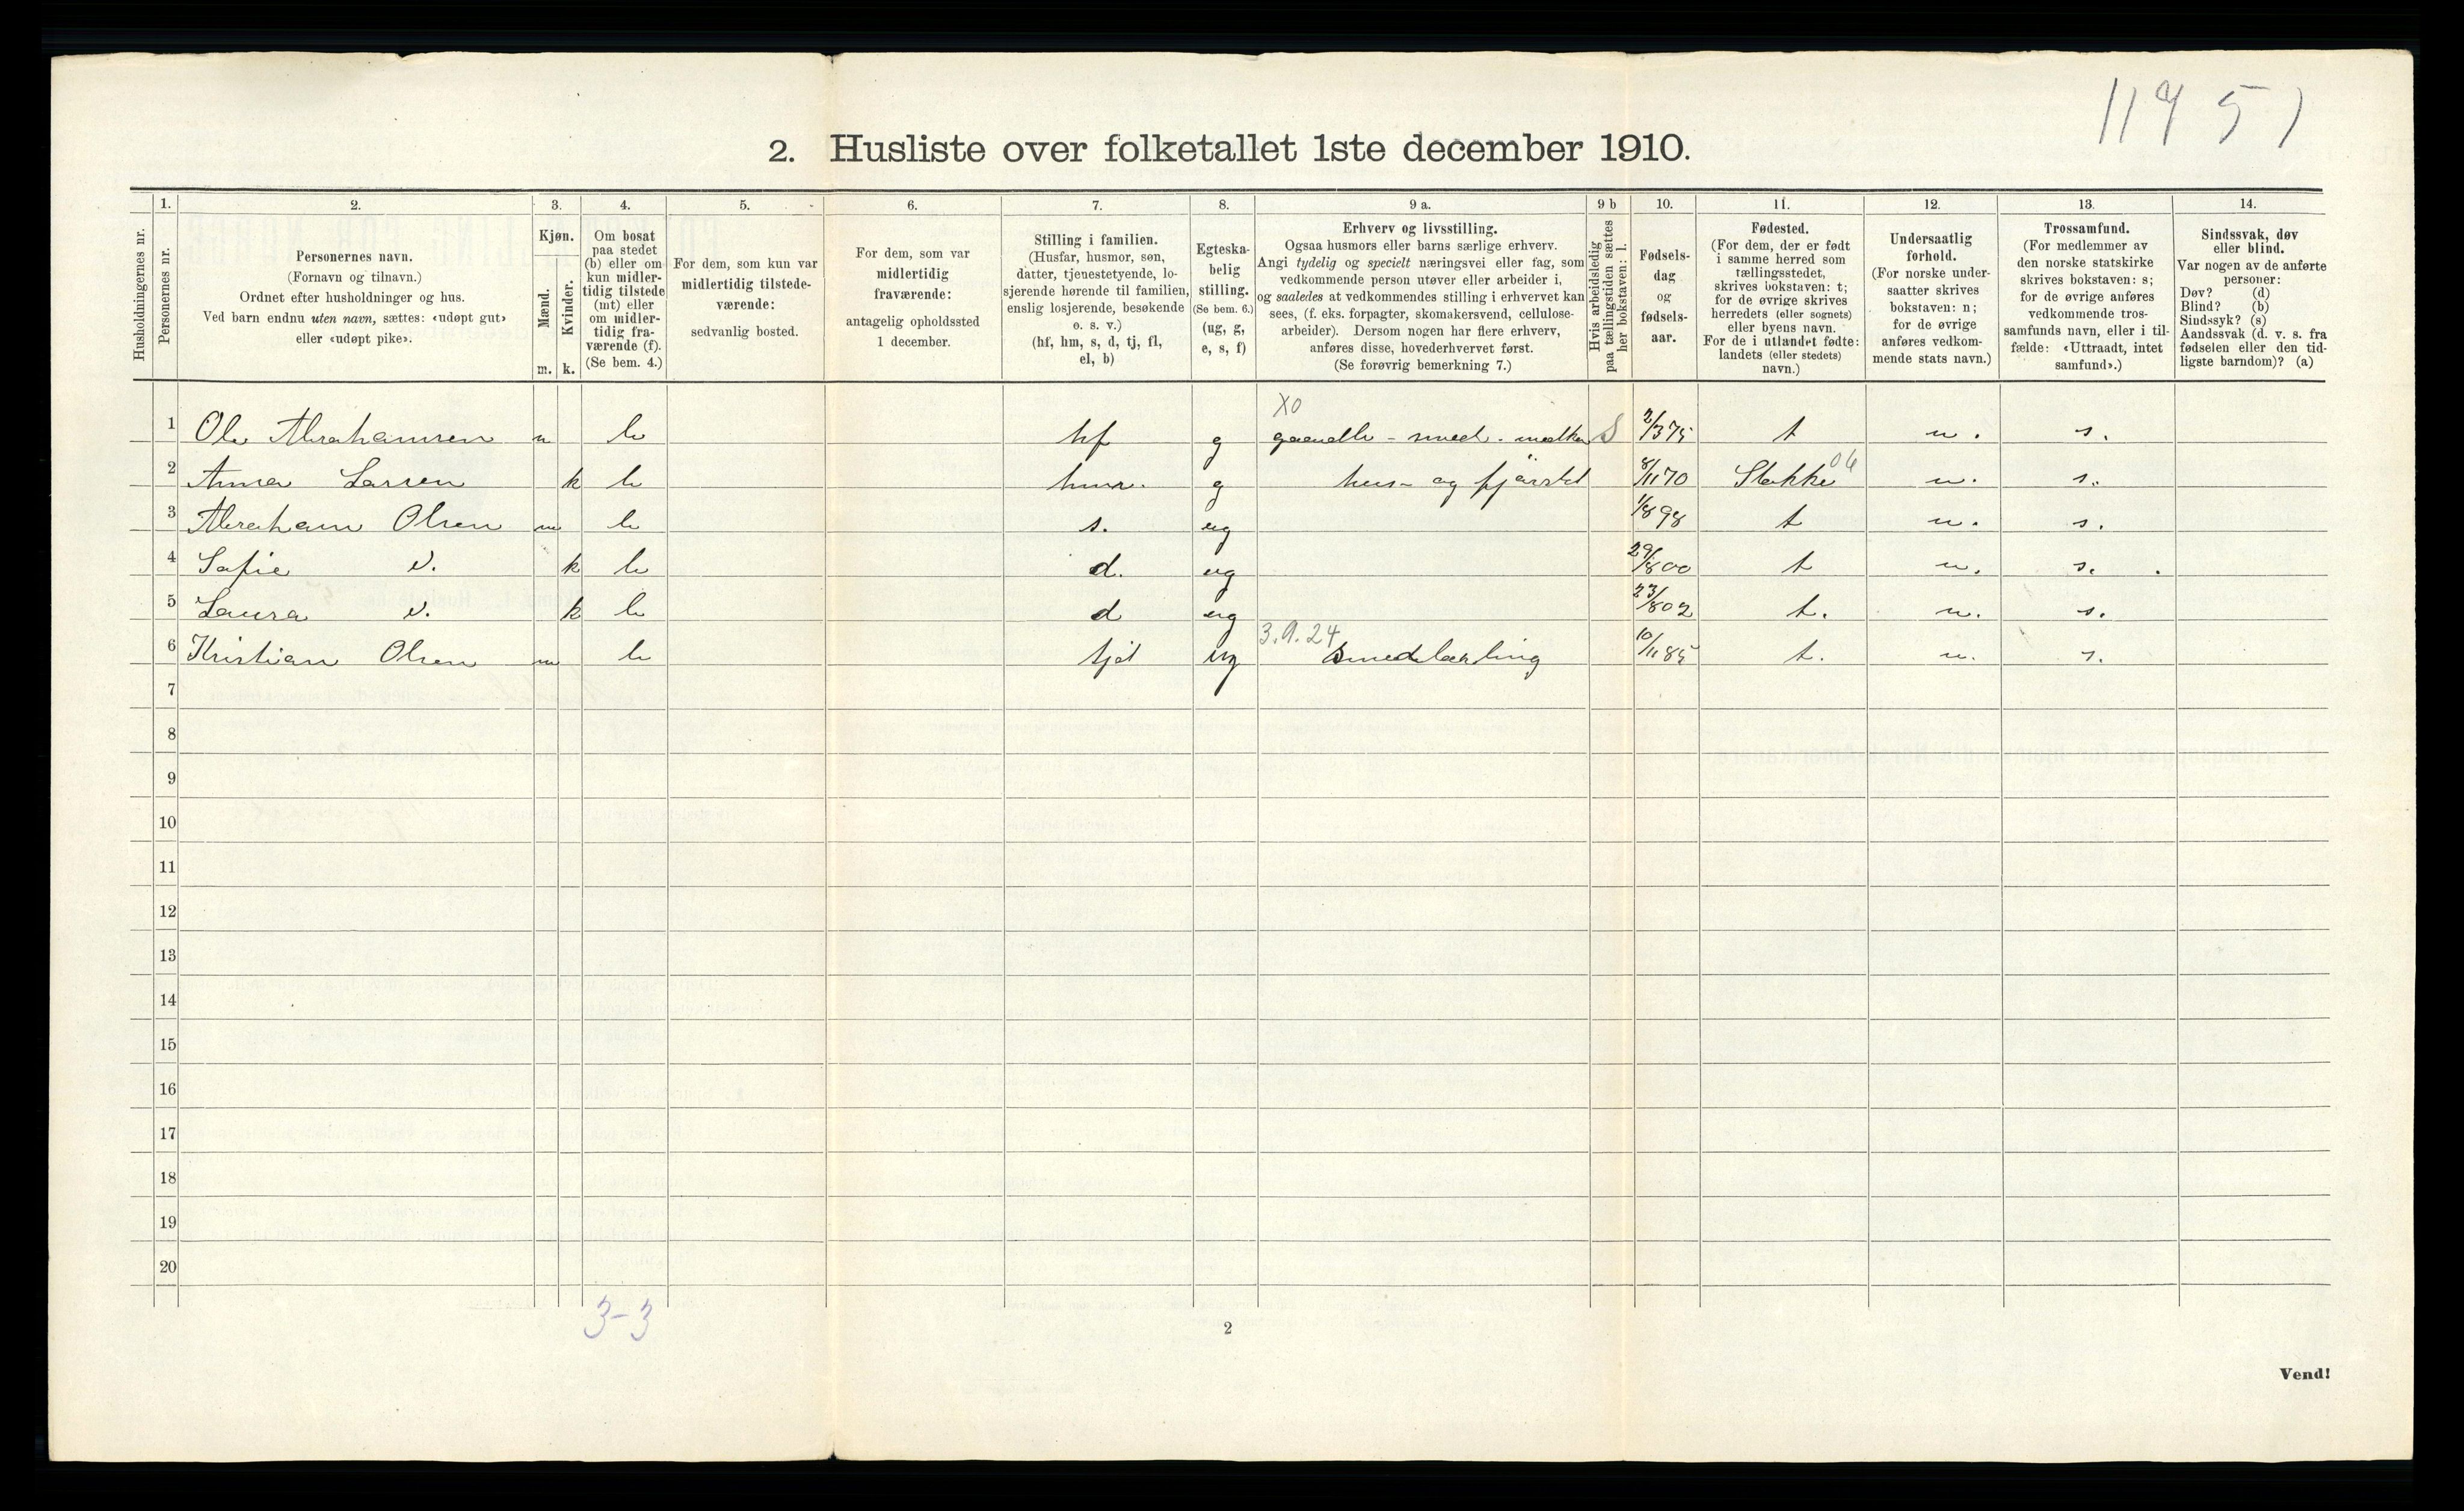 1195 1
2. Husliste over folketallet 1ste december 1910.
Husholdningernes nr.
1.
Personernes nr.
2.
Personernes navn.
(Fornavn og tilnavn.)
Ordnet efter husholdninger og hus.
Ved barn endnu uten navn, sættes: «udøpt gut»
eller «udøpt pike».
3.
Kjøn.
Mænd.
m.
Kvinder.
k.
4.
Om bosat
paa stedet
(b) eller om
kun midler-
tidig tilstede
(mt) eller
om midler-
tidig fra-
værende (f).
(Se bem. 4.)
5.
For dem, som kun var
midlertidig tilstede-
værende:
sedvanlig bosted.
6.
For dem, som var
midlertidig
fraværende:
antagelig opholdssted
1 december.
7.
Stilling i familien.
(Husfar, husmor, søn,
datter, tjenestetyende, lo-
sjerende hørende til familien,
enslig losjerende, besøkende
o. s. v.)
(hf, hm, s, d, tj, fl,
el, b)
8.
Egteska-
belig
stilling.
(Se bem. 6.)
(ug, g,
e, s, f)
9 a.
Erhverv og livsstilling.
Ogsaa husmors eller barns særlige erhverv.
Angi tydelig og specielt næringsvei eller fag, som
vedkommende person utøver eller arbeider i,
og saaledes at vedkommendes stilling i erhvervet kan
sees, (f. eks. forpagter, skomakersvend, cellulose-
arbeider). Dersom nogen har flere erhverv,
anføres disse, hovederhvervet først.
(Se forøvrig bemerkning 7.)
9 b
Hvis arbeidsledig
paa tællingstiden sættes
her bokstaven: l.
10.
Fødsels-
dag
og
fødsels-
aar.
11.
Fødested.
(For dem, der er født
i samme herred som
tællingsstedet,
skrives bokstaven: t;
for de øvrige skrives
herredets (eller sognets)
eller byens navn.
For de i utlandet fødte:
landets (eller stedets)
navn.)
12.
Undersaatlig
forhold.
(For norske under-
saatter skrives
bokstaven: n;
for de øvrige
anføres vedkom-
mende stats navn.)
13.
Trossamfund.
(For medlemmer av
den norske statskirke
skrives bokstaven: s;
for de øvrige anføres
vedkommende tros-
samfunds navn, eller i til-
fælde: «Uttraadt, intet
samfund».)
14.
Sindssvak, døv
eller blind.
Var nogen av de anførte
personer:
Døv? (d)
Blind? (b)
Sindssyk? (s)
Aandssvak (d. v. s. fra
fødselen eller den tid-
ligste barndom)? (a)
X0
1 Ole Abrahamsen m b hf g gaardb - smed S 2/3 75 t n. s.
2 Anna Larsen k b hm. g hus- og fjörstel 8/11 70 Stokke 06 n. s.
3 Abraham Olsen m b s. ug 1/8 98 t n. s.
4 Sofie v. k b d. ug 29/8 00 t n. s.
5 Laura v. k b d ug 23/8 02 t. n. s.
3.9.24
6 Kristian Olsen m b tjet ug Smedlærling 10/11 85 t. n. s.
7
8
9
10
11
12
13
14
15
16
17
18
19
20
3-3
2
Vend!